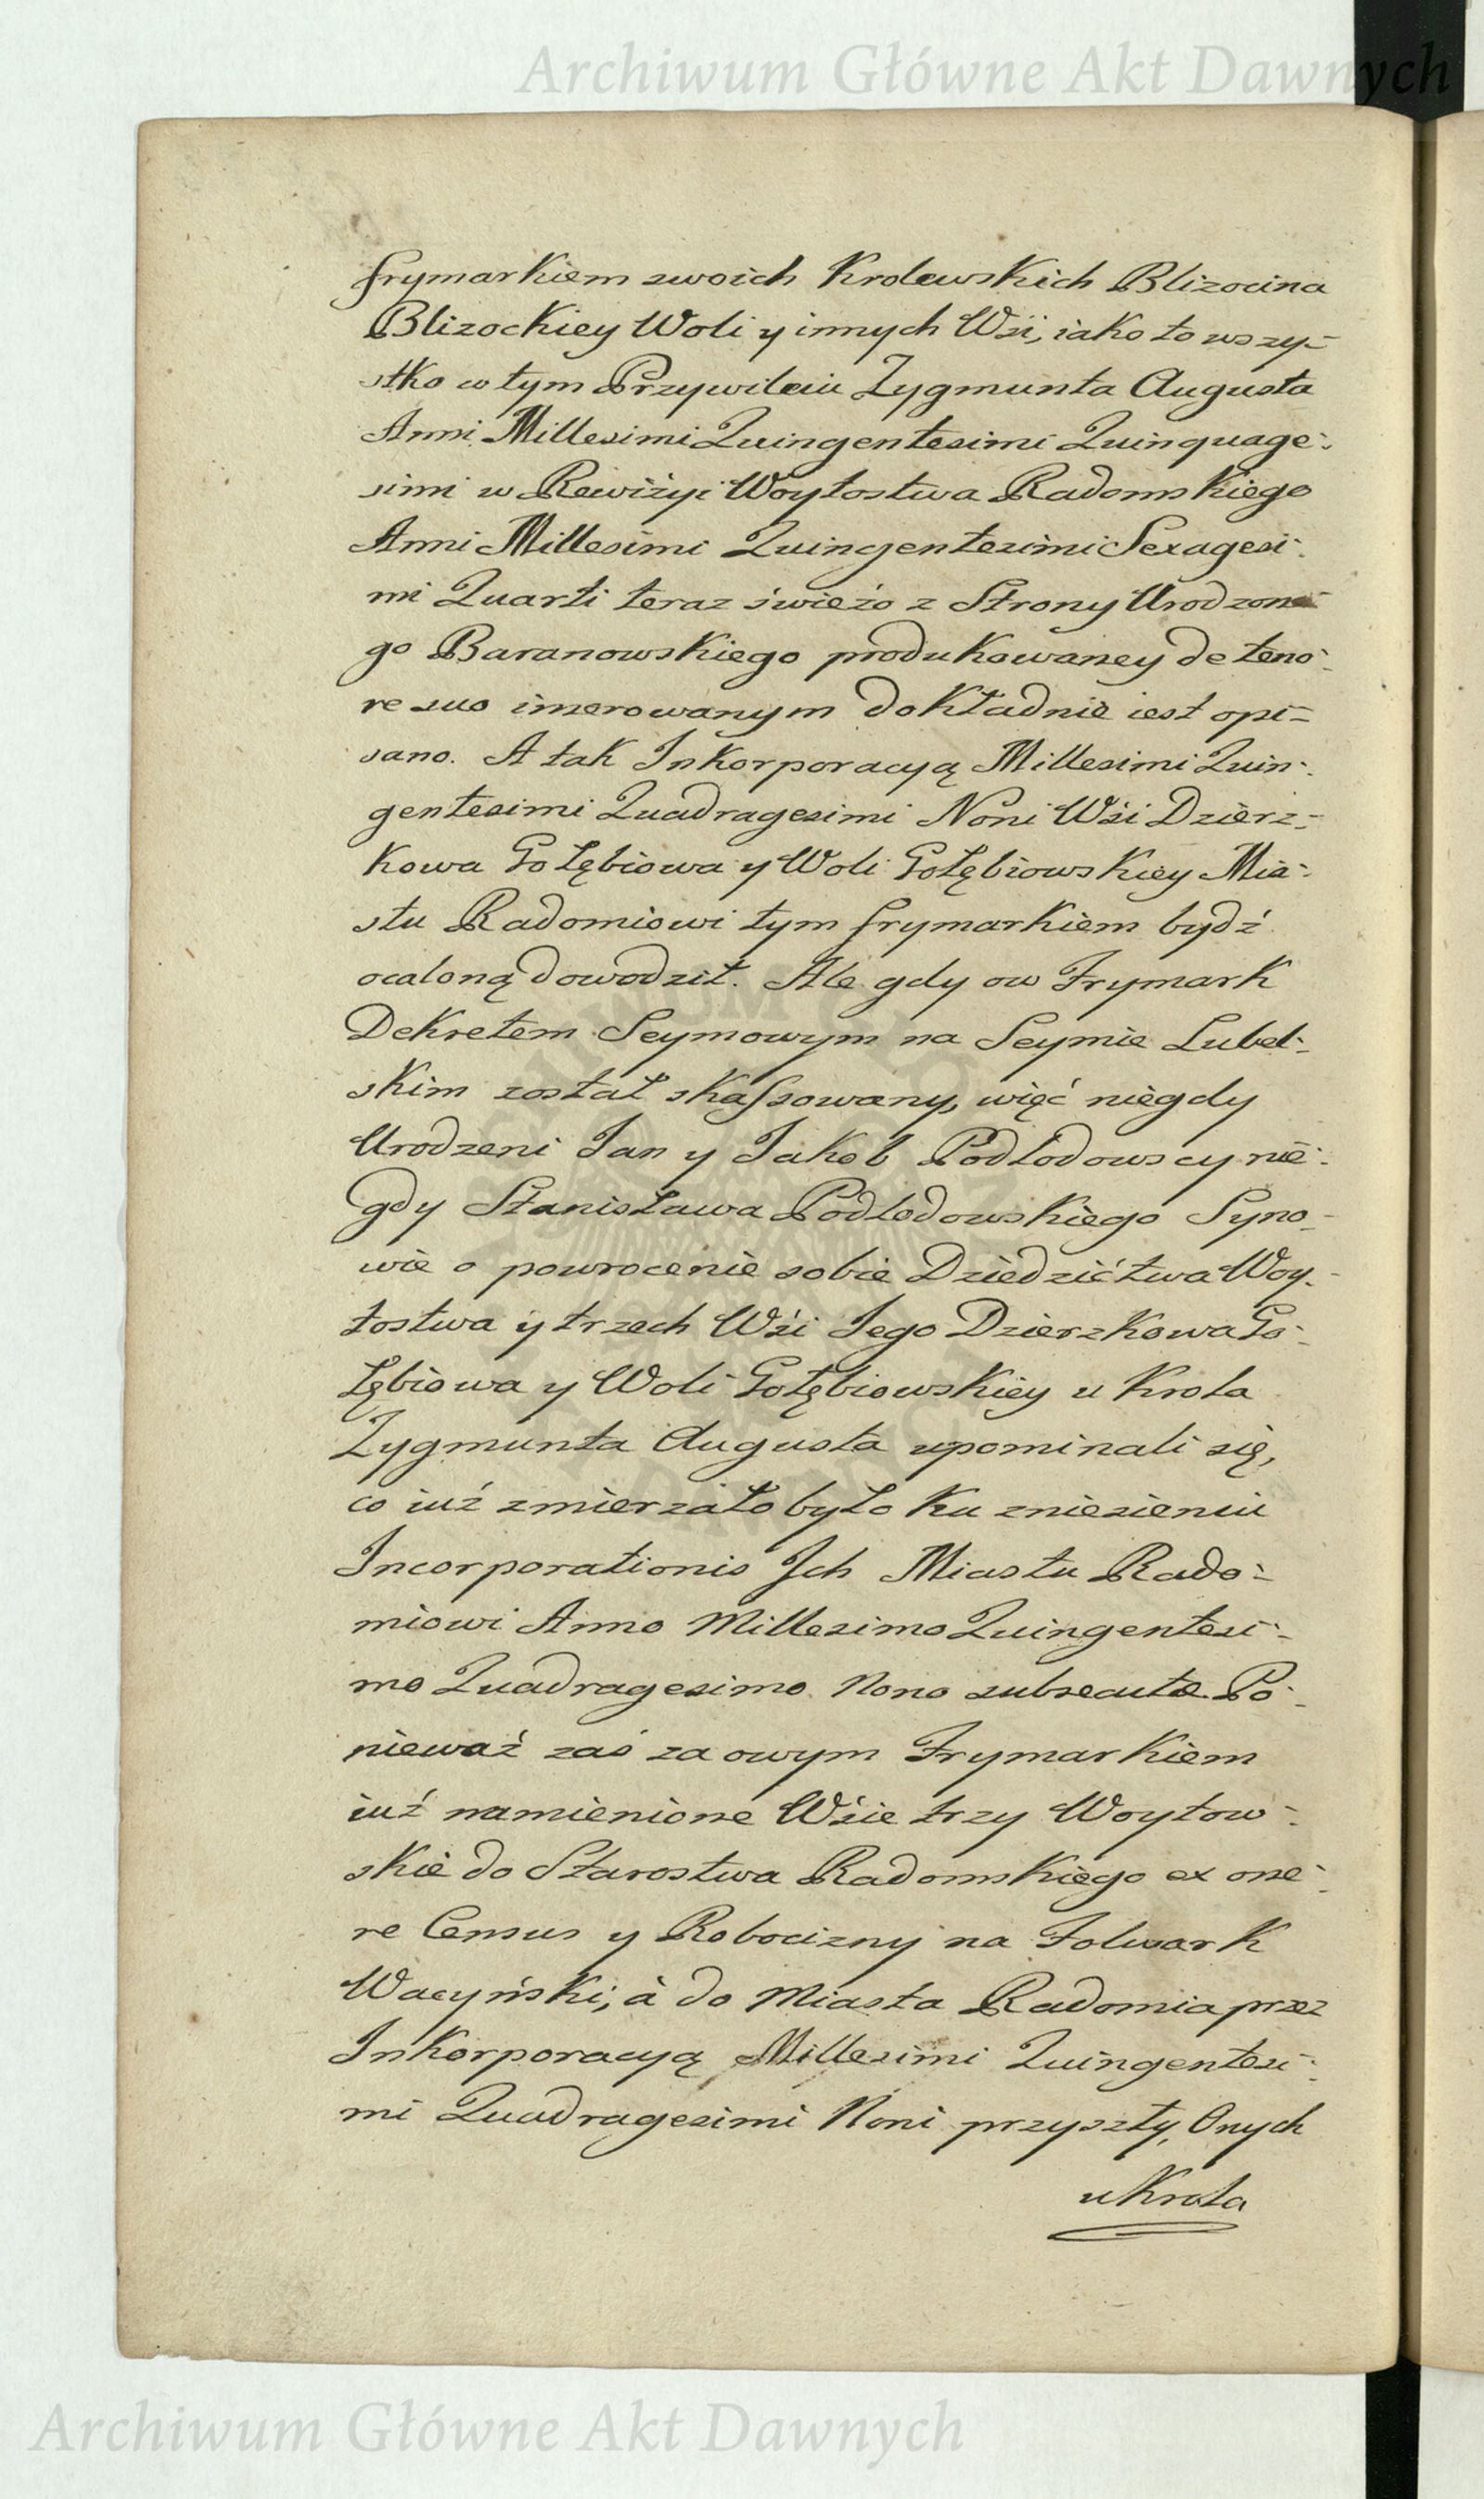 Archiwum Główne Akt Dawnych
frymarkiem swoich Krolewskich Blizocina
Blizockiey Woli y innych Wśi, iako to wszy-
stko w tym Przywileiu Zygmunta Augusta
Anni Millesimi Quingentesimi Quinquage-
simi w Rewizyi Woytostwa Radomskiego
Anni Millesimi Quingentesimi Sexagesi-
mi Quarti teraz świeżo z Strony Urodzone-
go Baranowskiego produkowaney de teno-
re suo inserowanym dokładnie iest opi-
sano. A tak Inkorporacyą Millesimi Quin-
gentesimi Quadragesimi Noni Wśi Dzierz-
kowa Gołębiowa y Woli Gołębiowskiey Mia-
stu Radomiowi tym frymarkiem bydź
ocaloną dowodził. Ale gdy ow Frymark
Dekretem Seymowym na Seymie Lubel-
skim został skassowany, więć niegdy
Urodzeni Jan y Jakob Podlodowscy nie-
gdy Stanisława Podlodowskiego Syno-
wie o powrocenie sobie Dziedzićtwa Woy-
tostwa y trzech Wśi Jego Dzierzkowa Go-
łębiowa y Woli Gołębiowskiey u Krola
Zygmunta Augusta upominali się,
co iuż zmierzało było ku zniesieniu
Incorporationis Jch Miastu Rado-
miowi Anno Millesimo Quingentesi-
mo Quadragesimo Nono subsecutæ. Po-
nieważ zaś za owym Frymarkiem
iuż namienione Wśie trzy Woytow-
skie do Starostwa Radomskiego ex one-
re Census y Robocizny na Folwark
Wacyński, à do Miasta Radomia przez
Inkorporacyą Millesimi Quingentesi-
mi Quadragesimi Noni przyszły, Onych
u Krola
Archiwum Główne Akt Dawnych